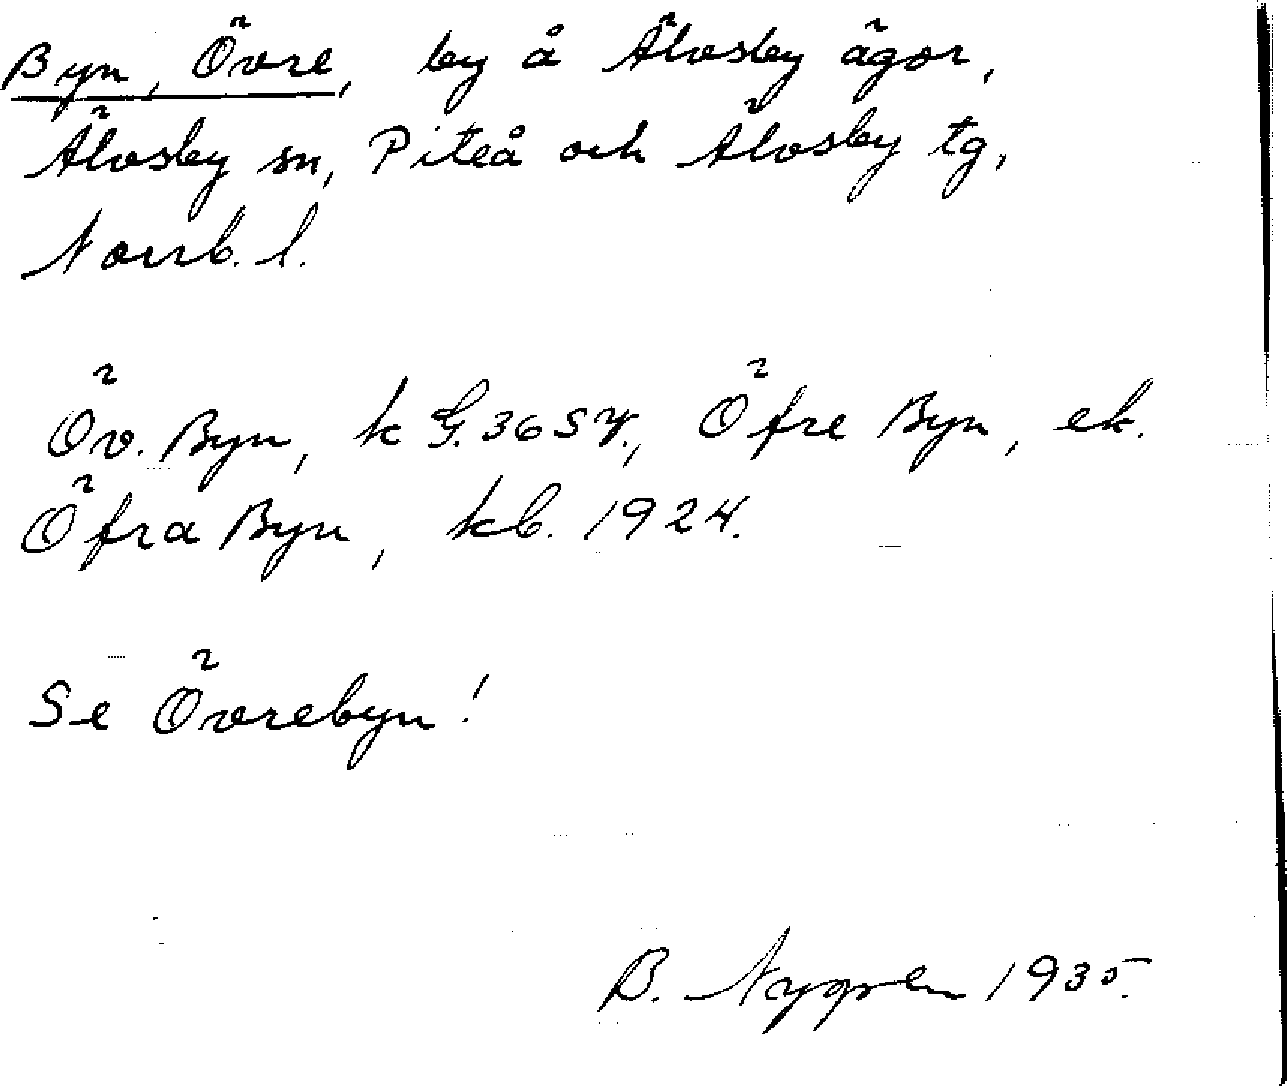 Byn, Övre, by å Älvsby ägor,
Älvsby sn, Piteå och Älvsby tg,
Norrb. l.
Öv. Byn, k G. 3654., Öfre Byn, ek.
Öfra Byn, kb. 1924.
Se Övrebyn!
B. Nygren 1935.